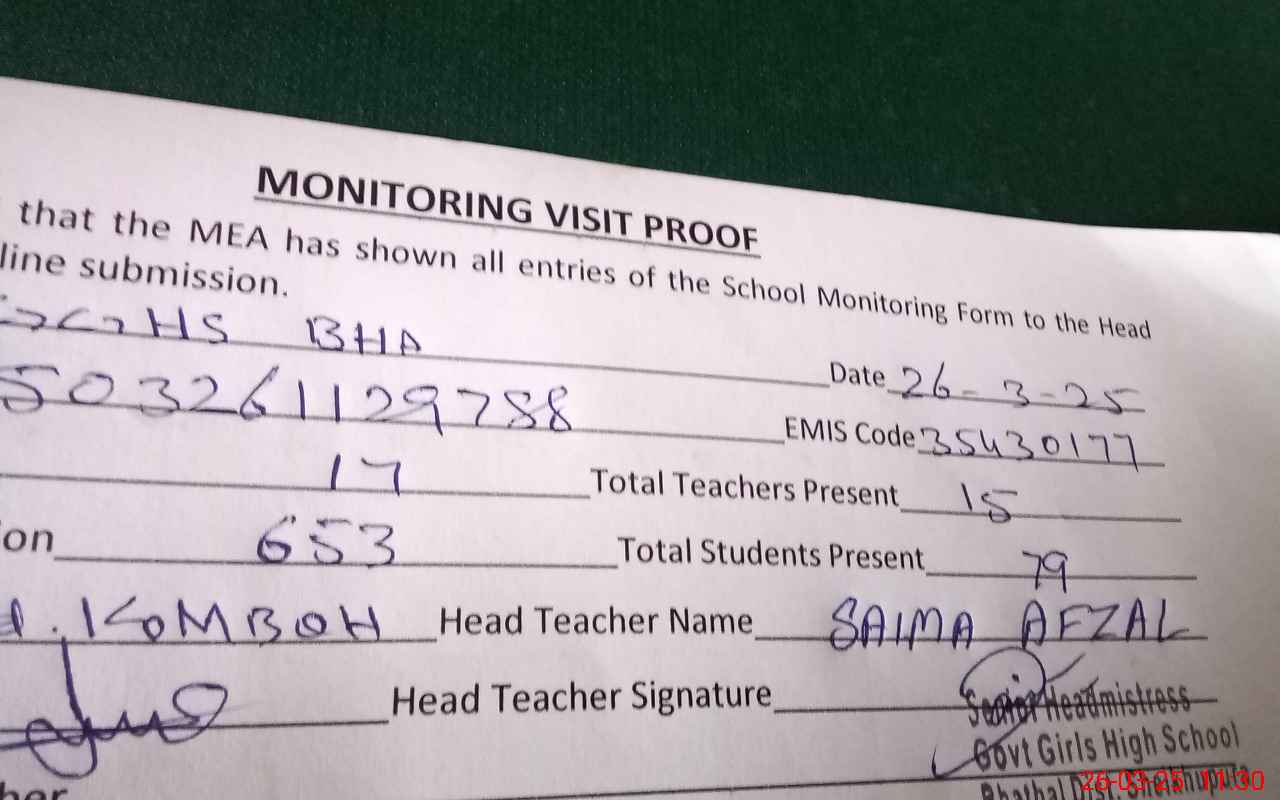 MONITORING VISIT PROOF
that the MEA has shown all entries of the School Monitoring Form to the Head
line submission.
GGHS BHA Date 26-3-25
503261129788 EMIS Code 35430177
17 Total Teachers Present 15
on 653 Total Students Present 79
. KOMBOH Head Teacher Name SAIMA AFZAL
Head Teacher Signature
Senior Headmistress
Govt Girls High School
Bhathal Dist. Sheikhupura
26-03-25 11:30